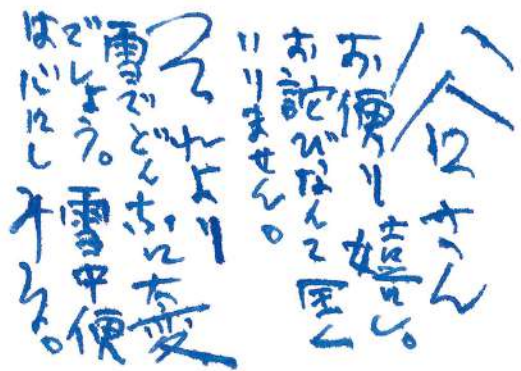 谷さん
お便り嬉し。
お詫びなんて全く
いりません。
それより
雪でどんなに大変
でしょう。雪中便
は心にしみる。